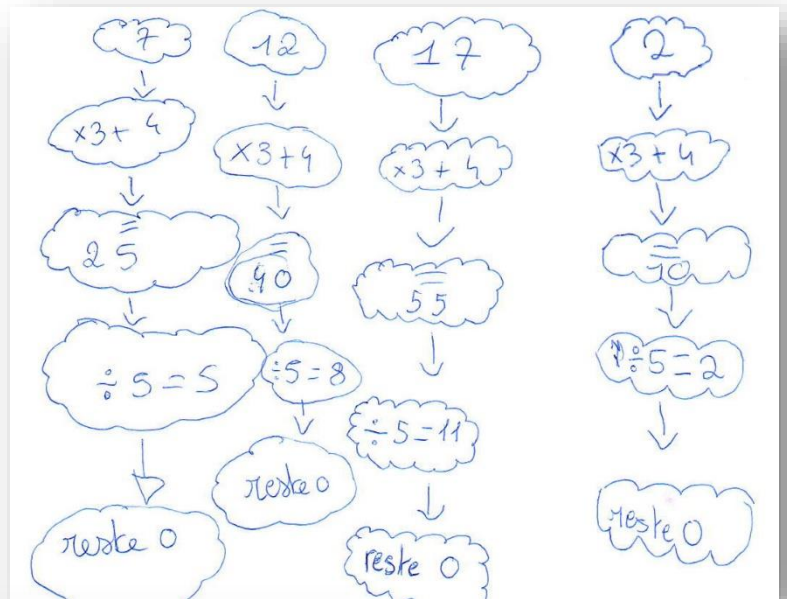 7
×3+4
=
25
÷5=5
reste 0
12
×3+4
=
40
÷5=8
reste 0
17
×3+4
=
55
÷5=11
reste 0
2
×3+4
=
10
÷5=2
reste 0